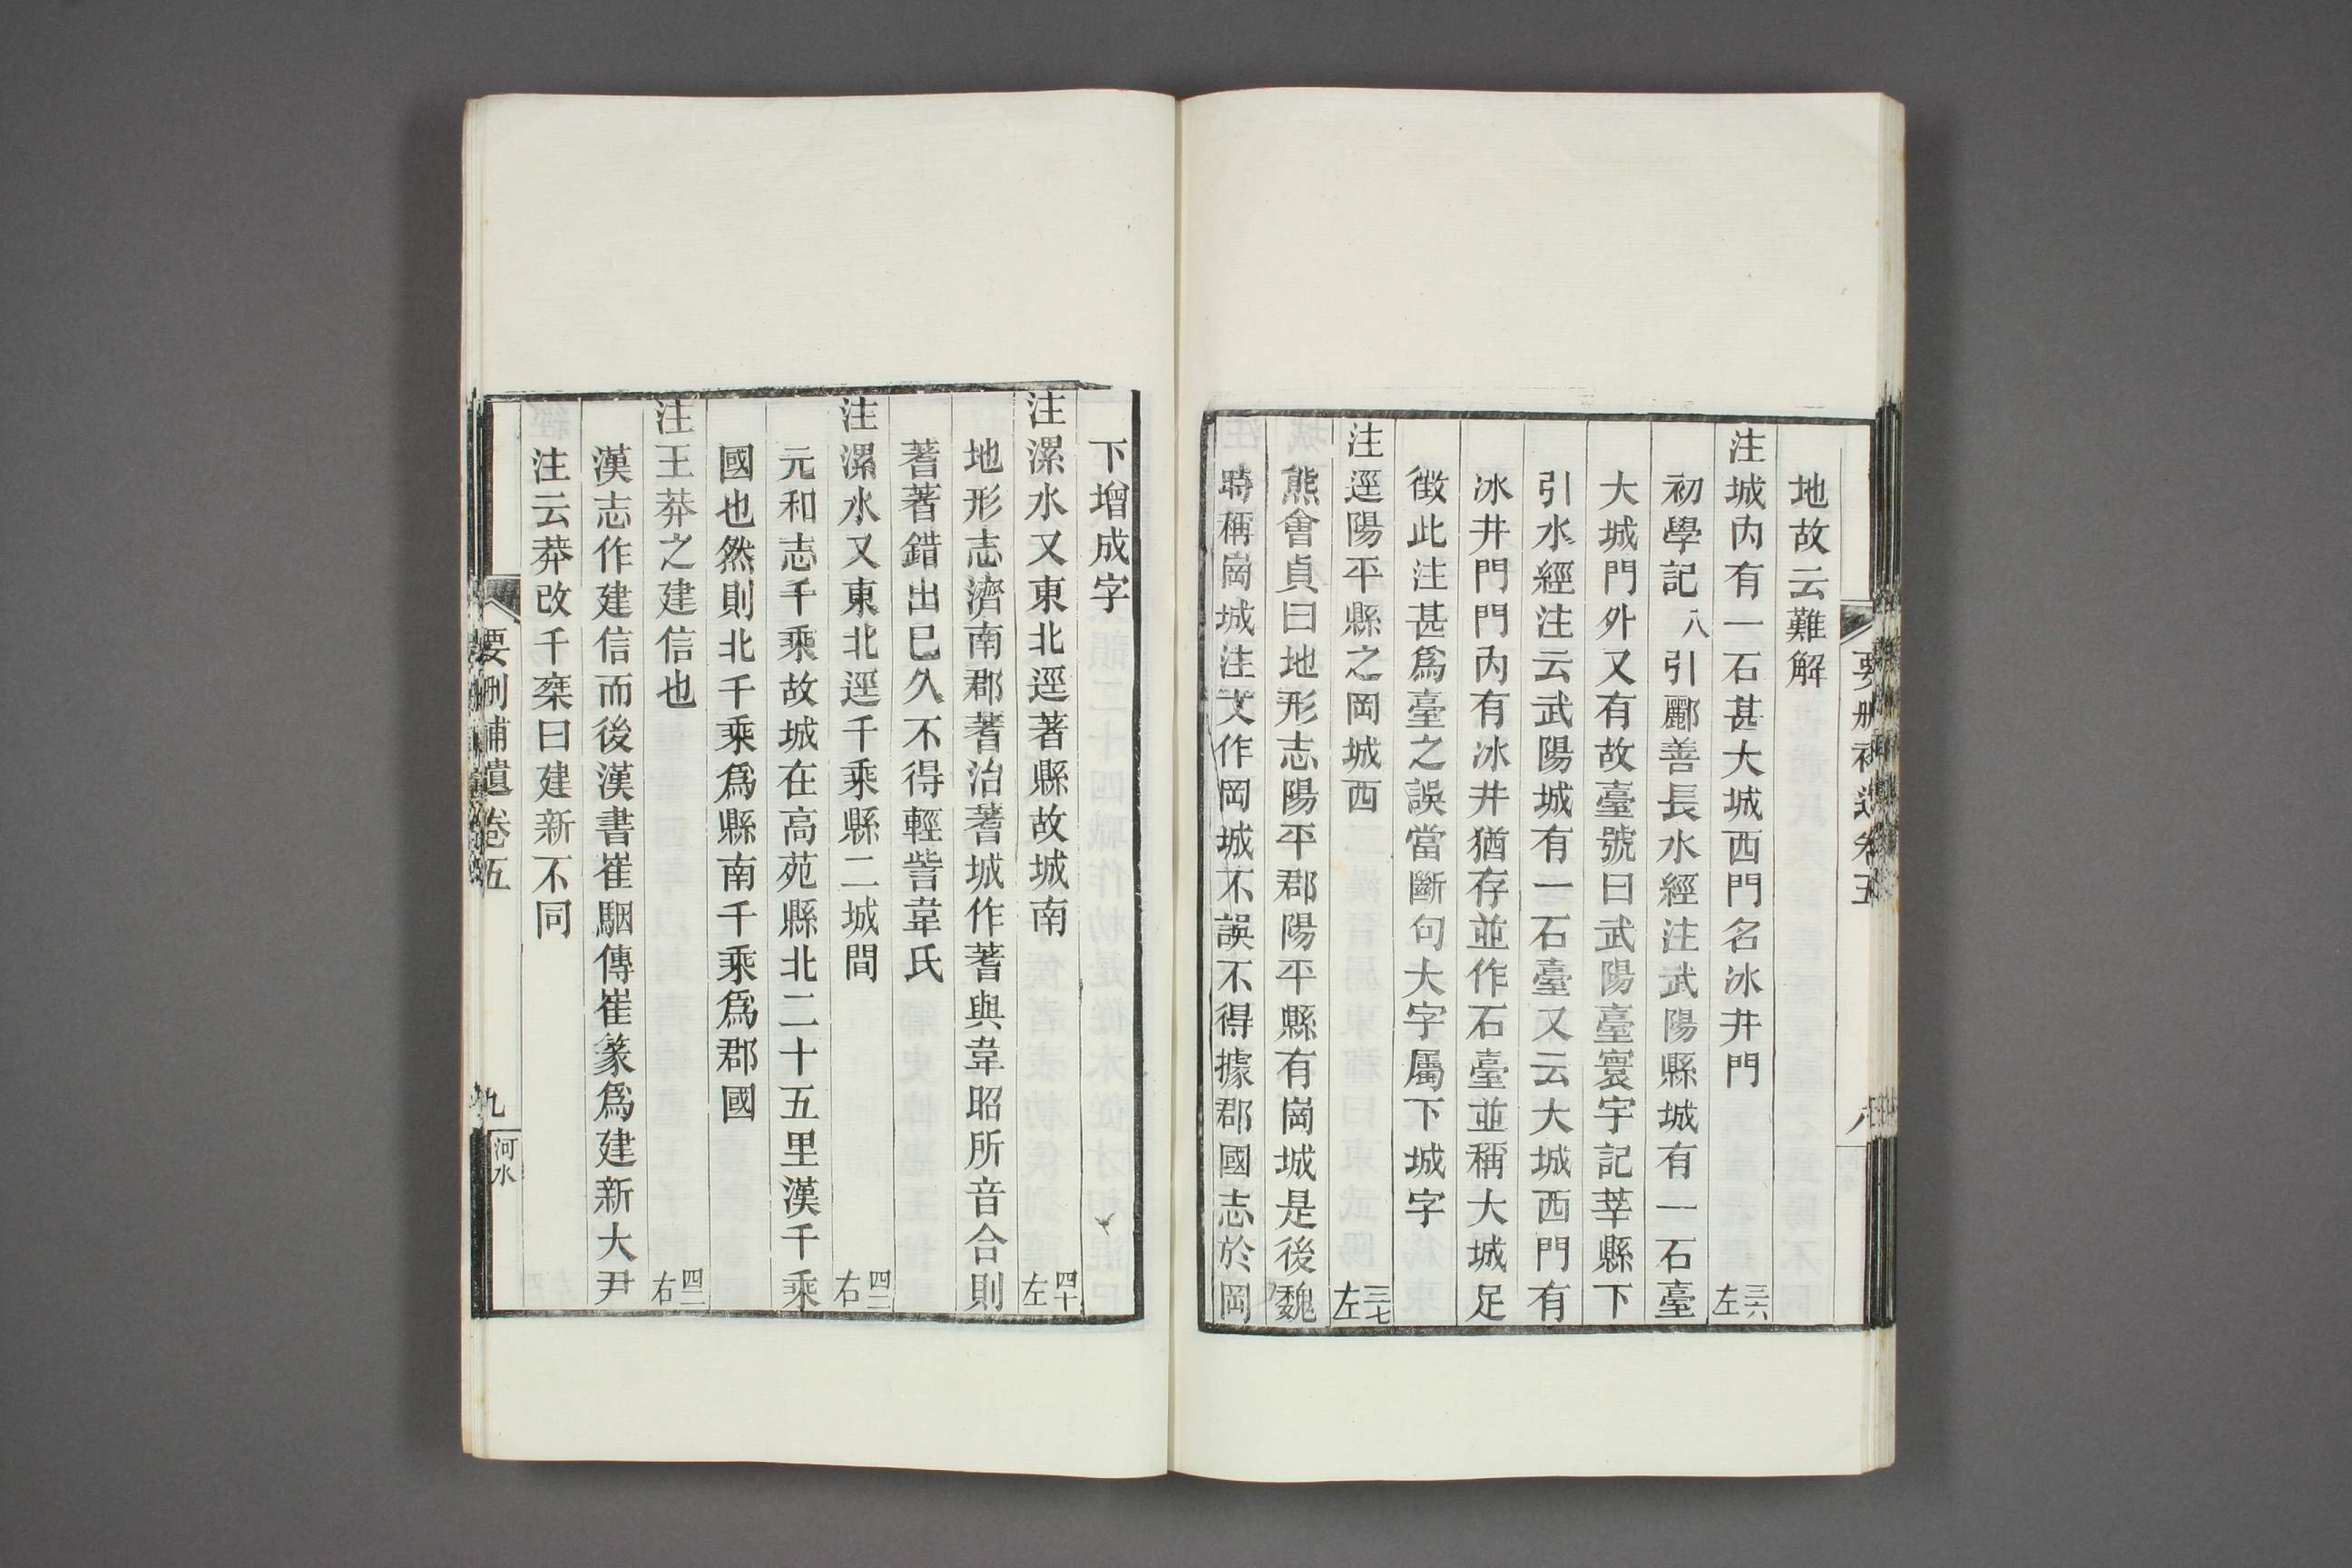 地故云難解
注城內有一石甚大城西門名冰井門 三六左
初學記八引酈善長水經注武陽縣城有一石臺
大城門外又有故臺號曰武陽臺寰宇記莘縣下
引水經注云武陽城有一石臺又云大城西門有
冰井門門內有冰井猶存並作石臺並稱大城足
徵此注甚爲臺之誤當斷句大字屬下城字
注逕陽平縣之岡城西 三七左
熊會貞曰地形志陽平郡陽平縣有崗城是後魏
時稱崗城注文作岡城不誤不得據郡國志於岡
下增成字
注漯水又東北逕著縣故城南 四十左
地形志濟南郡蓍治蓍城作蓍與韋昭所音合則
蓍著錯出已久不得輕訾韋氏
注漯水又東北逕千乘縣二城間 四二右
元和志千乘故城在高苑縣北二十五里漢千乘
國也然則北千乘爲縣南千乘爲郡國
注王莽之建信也 四二右
漢志作建信而後漢書崔駰傳崔篆爲建新大尹
注云莽改千椉曰建新不同
要刪補遺卷五
九
河水